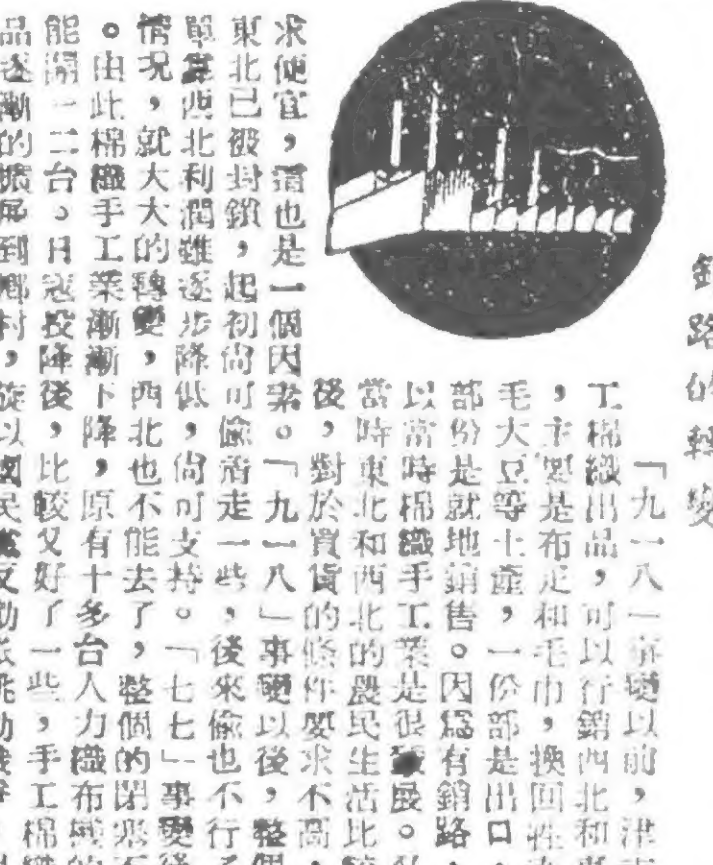 銷路的轉變
「九一八」事變以前，津
工棉織出品，可以行銷西北和
，主要是布疋和毛巾，換回牲
毛大豆等土產，一份部是出口
部份是就地銷售。因爲有銷路，
以當時棉織手工業是很發展。
當時東北和西北的農民生活比
後，對於買貨的條件要求不高，
求便宜，這也是一個因素。「九一八」事變以後，整個
東北已被封鎖，起初尙可偷着走一些，後來偷也不行
單靠西北利潤雖逐步降低，尙可支持。「七七」事變後
情況，就大大的轉變，西北也不能去了，整個的閉
。由此棉織手工業漸漸下降，原有十多台人力織布機的
能開一二台。日寇投降後，比較又好了一些，手工棉織
品逐漸的擴展到鄉村，旋以國民黨反動派